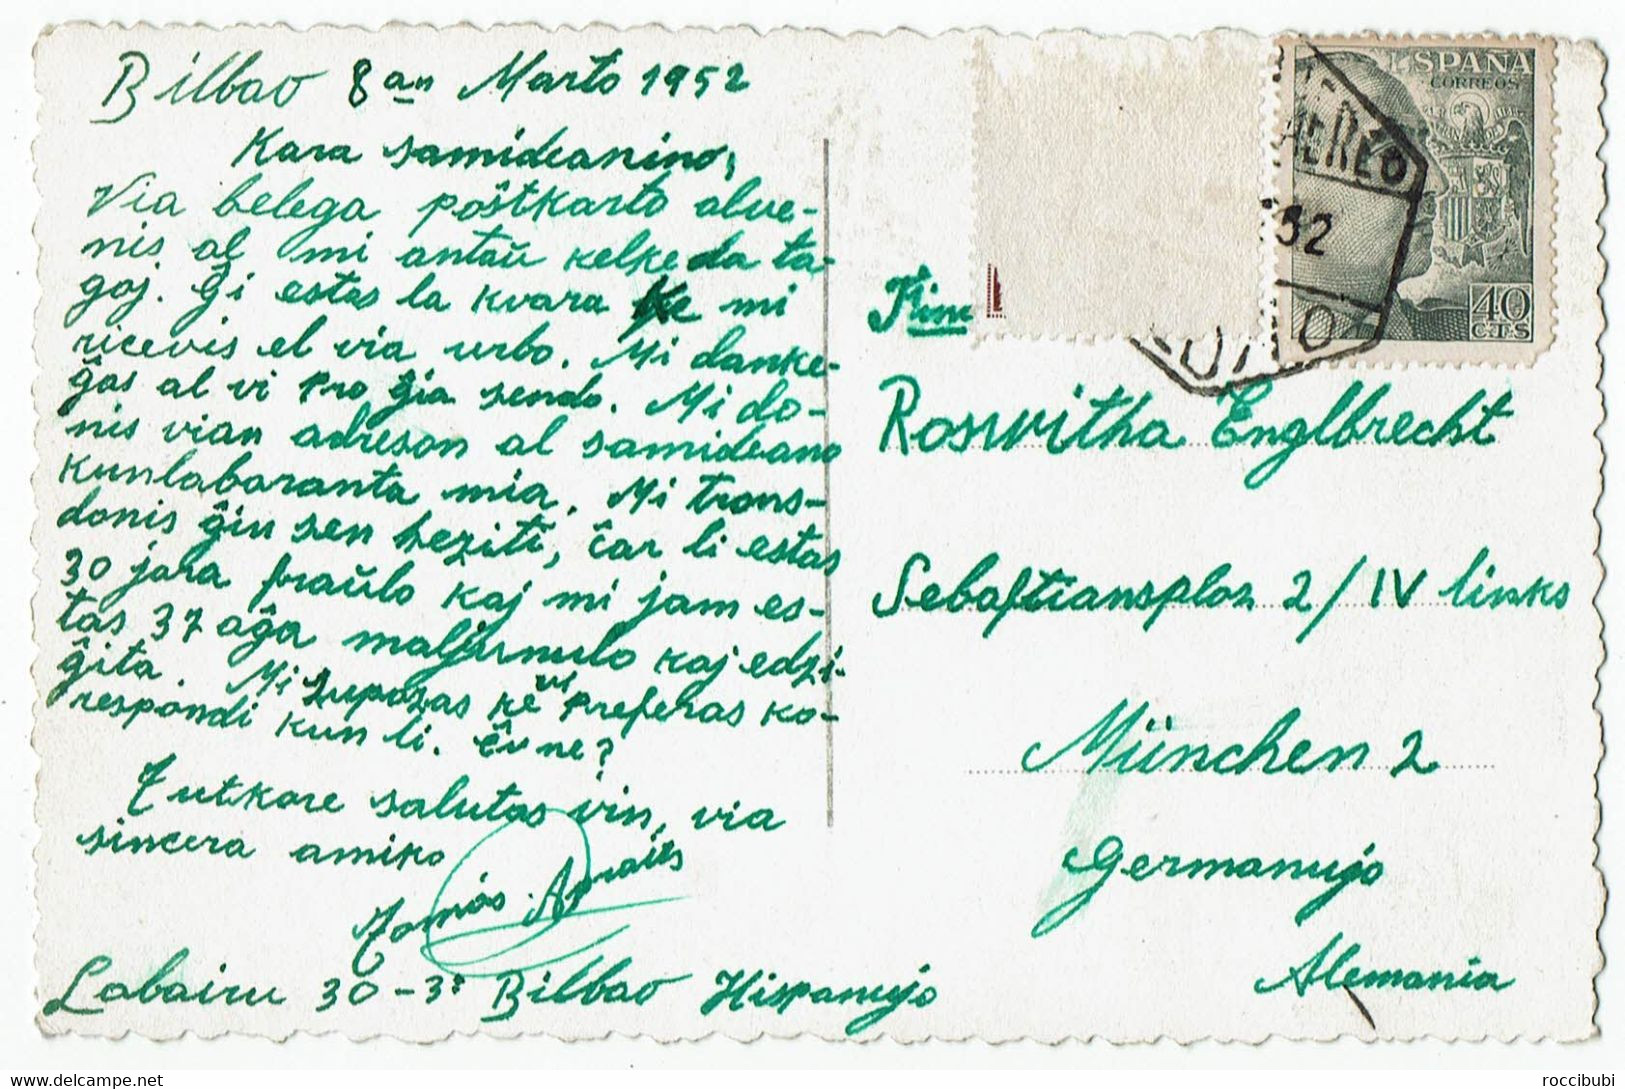 Bilbao 8an Marto 1952
Kara samideanino,
Via belega poŝtkarto alve-
nis al mi antaŭ kelke da ta-
goj. Ĝi estas la kvara ke mi
ricevis el via urbo. Mi danke-
ĝas al vi pro ĝia sendo. Mi do-
nis vian adreson al samideano
kunlaboranta mia. Mi trans-
donis ĝin sen heziti, ĉar li estas
30 jara fraŭlo kaj mi jam es-
tas 37 aĝa maljunulo kaj edzi-
ĝita. Mi supozas ke vi preferas ko-
respondi kun li. Ĉu ne?
Tutkore salutas vin, via
sincera amiko
Tomás
Labairu 30-3º Bilbao Hispanujo
ESPAÑA
CORREOS
AEREO
52
40
CTS
Roswitha Englbrecht
Sebastiansplaz 2/IV links
München 2
Germanujo
Alemania
roccibubi